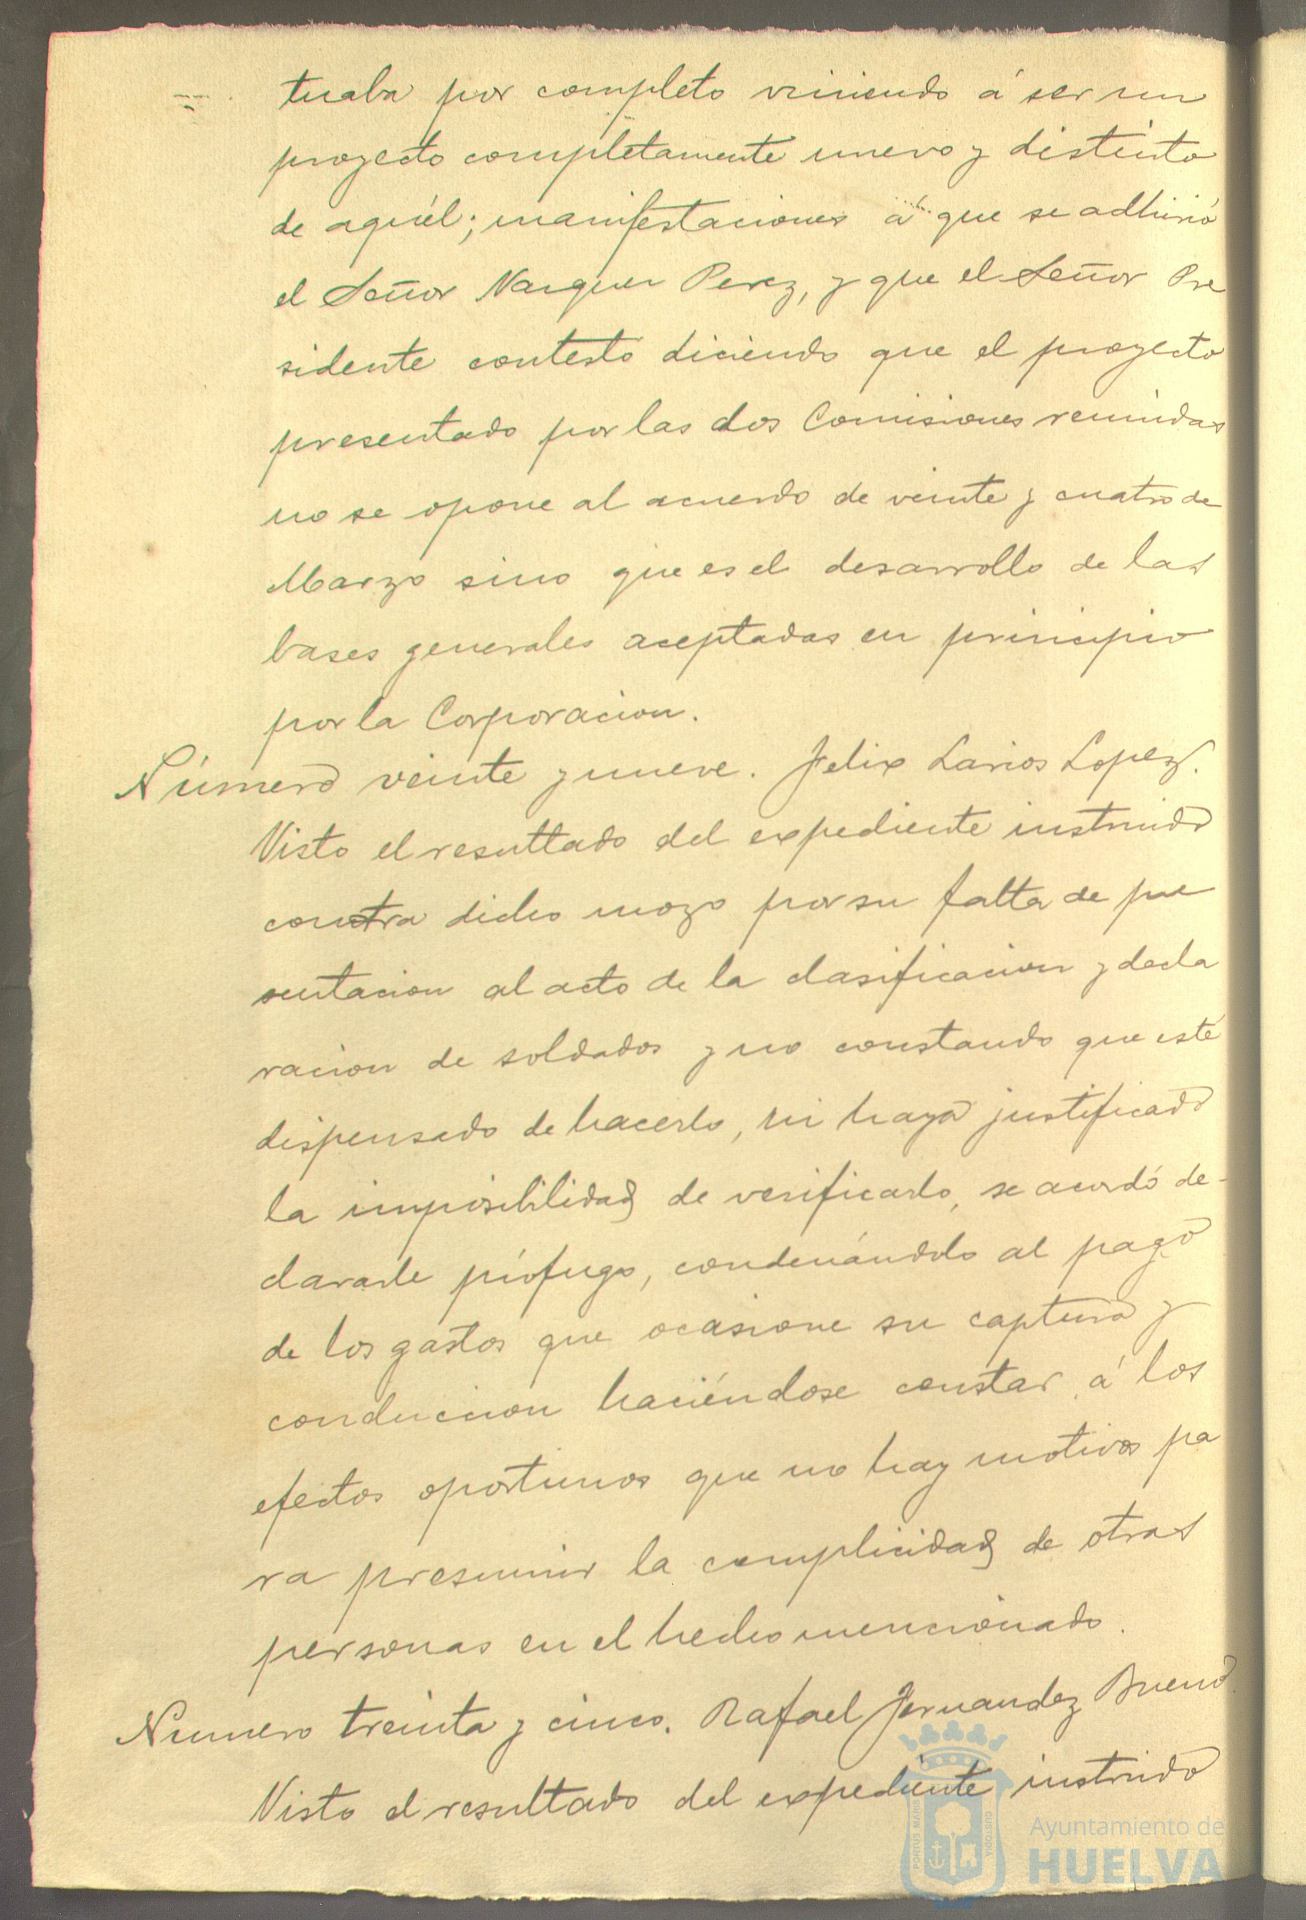 tuaba por completo viniendo á ser un
proyecto completamente nuevo y distinto
de aquél; manifestaciones á que se adhirió
el Señor Vazquez Perez, y que el Señor Pre
sidente contestó diciendo que el proyecto
presentado por las dos Comisiones reunidas
no se opone al acuerdo de veinte y cuatro de
Marzo sino que es el desarrollo de las
bases generales aceptadas en principio
por la Corporacion.
Número veinte y nueve. Felix Larios Lopez.
Visto el resultado del expediente instruido
contra dicho mozo por su falta de pre
sentacion al acto de la clasificacion y decla
racion de soldados y no constando que esté
dispensado de hacerlo, ni haya justificado
la imposibilidad de verificarlo, se acordó de-
clararle prófugo, condenándolo al pago
de los gastos que ocasione su captura y
conduccion haciéndose constar á los
efectos oportunos que no hay motivos pa
ra presumir la complicidad de otras
personas en el hecho mencionado.
Numero treinta y cinco. Rafael Fernandez Bueno.
Visto el resultado del expediente instruido
PORTUS MARIS CUSTODIA
Ayuntamiento de
HUELVA